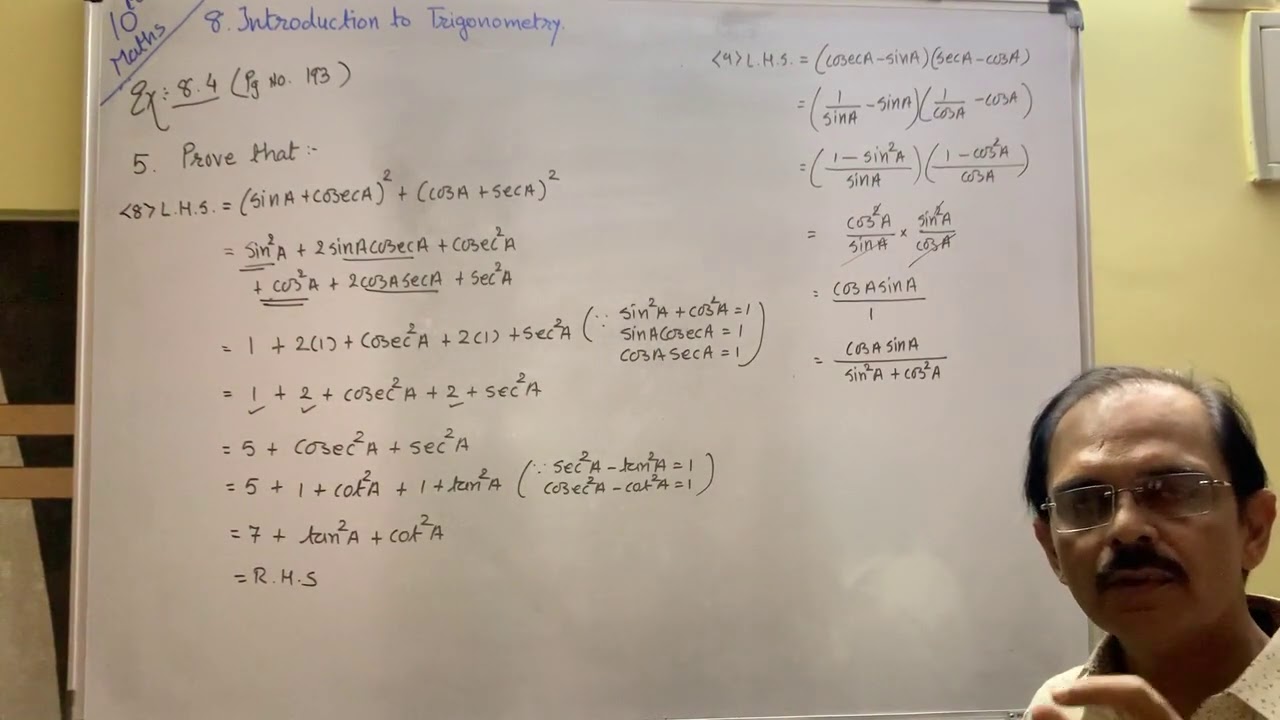 10
Maths
8. Introduction to Trigonometry.
Ex: 8.4 (Pg No. 193)
5. Prove that :-
<8> L.H.S. = (sinA + cosecA)² + (cosA + secA)²
= sin²A + 2sinAcosecA + cosec²A
+ cos²A + 2cosAsecA + sec²A
= 1 + 2(1) + cosec²A + 2(1) + sec²A (∵ sin²A + cos²A = 1
sinAcosecA = 1
cosAsecA = 1)
= 1 + 2 + cosec²A + 2 + sec²A
= 5 + cosec²A + sec²A
= 5 + 1 + cot²A + 1 + tan²A (∵ sec²A - tan²A = 1
cosec²A - cot²A = 1)
= 7 + tan²A + cot²A
= R.H.S
<9> L.H.S. = (cosecA - sinA)(secA - cosA)
= (1/sinA - sinA)(1/cosA - cosA)
= (1 - sin²A/sinA)(1 - cos²A/cosA)
= cos²A/sinA × sin²A/cosA
= cosAsinA/1
= cosAsinA/sin²A + cos²A